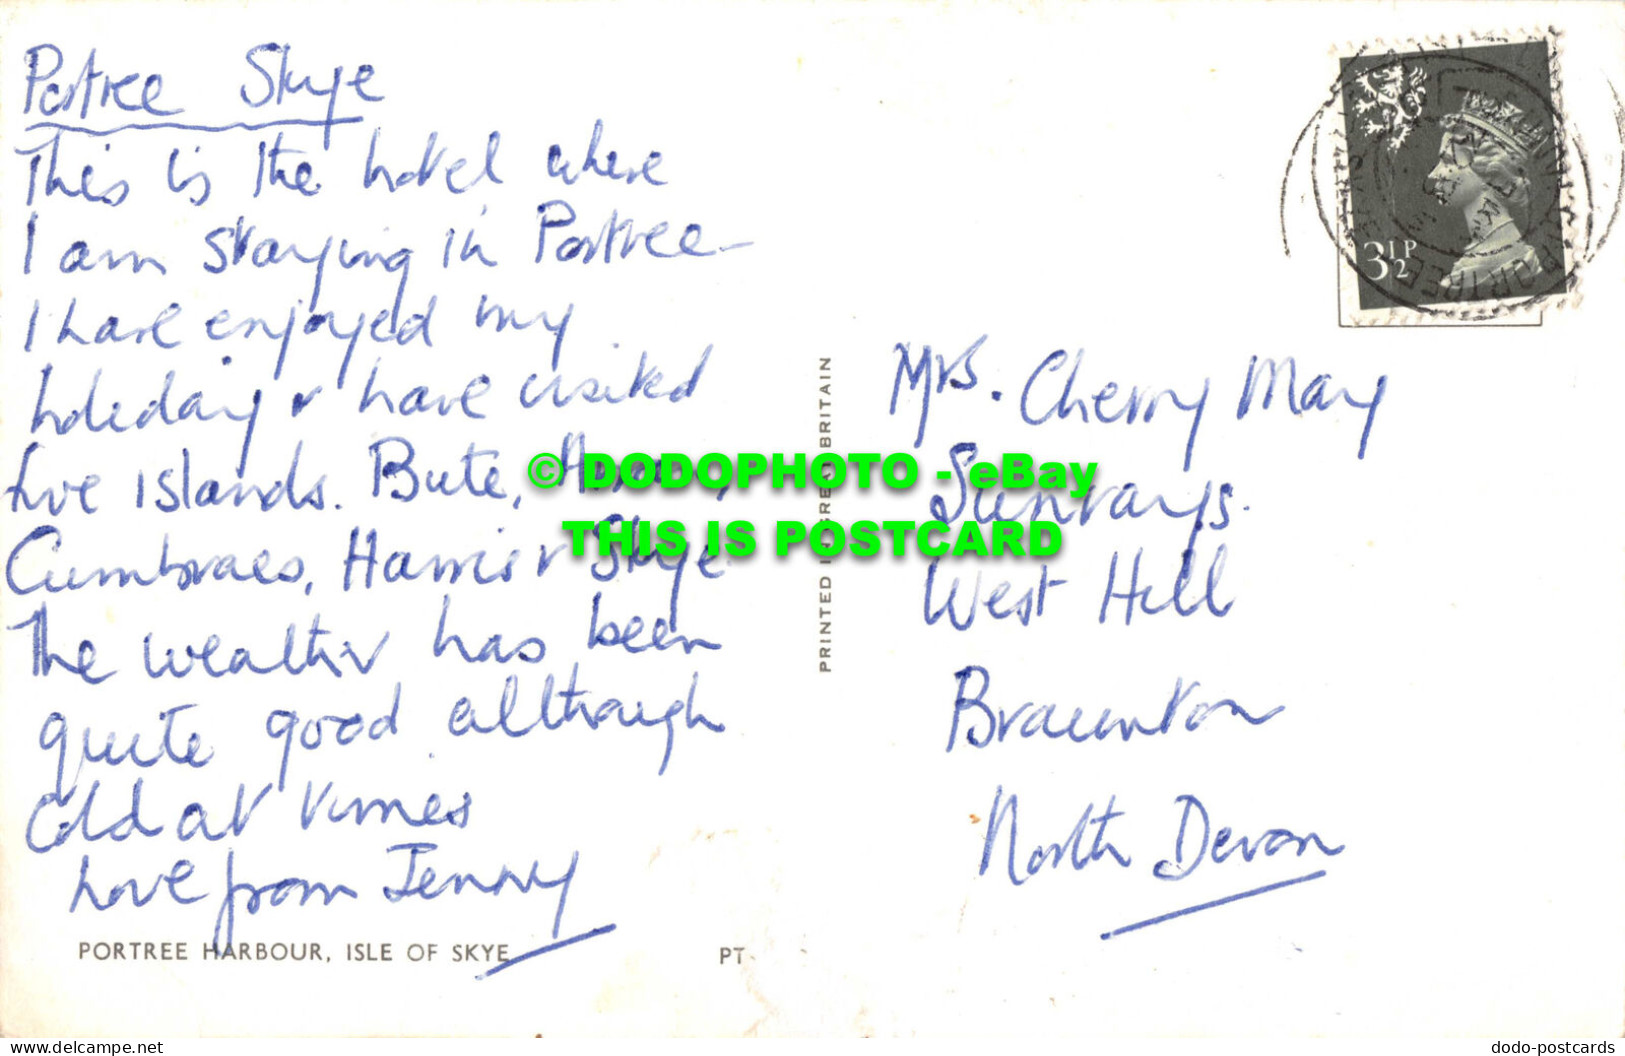 Portree Skye
This is the hotel where
I am staying in Portree -
I have enjoyed my
holiday & have visited
five islands. Bute, Arran,
Cumbraes, Harris & Skye
The weather has been
quite good although
Cold at times
Love from Jenny
PORTREE HARBOUR, ISLE OF SKYE
PT
PRINTED IN GREAT BRITAIN
3½P
PORTREE
Mrs. Cherry May
Sunrays.
West Hill
Braunton
North Devon
© DODOPHOTO - eBay
THIS IS POSTCARD
www.delcampe.net
dodo-postcards